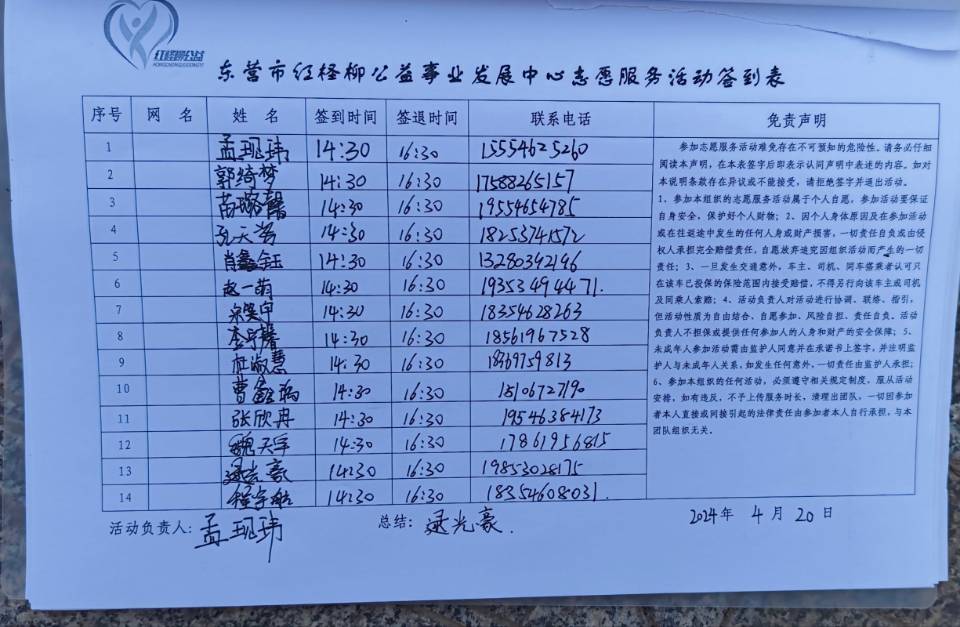 红柽柳公益
东营市红柽柳公益事业发展中心志愿服务活动签到表
序号 网 名 姓 名 签到时间 签退时间 联系电话 免责声明
1 孟现玮 14:30 16:30 15554625260
2 郭绮梦 14:30 16:30 17588265157
3 苗璐馨 14:30 16:30 19554654785
4 孔天 14:30 16:30 18253741572
5 肖鑫钰 14:30 16:30 13280392196
6 赵一萌 14:30 16:30 19353494471.
7 14:30 16:30 18354628263
8 李 馨 14:30 16:30 18561967528
9 淑慧 14:30 16:30 18369759813
10 曹鑫 14:30 16:30 15106727190
11 张欣冉 14:30 16:30 19546384173
12 魏天宇 14:30 16:30 17861956815
13 逯光豪 14:30 16:30 19853028175
14 程宇航 14:30 16:30 18354608031.
参加志愿服务活动难免存在不可预知的危险性。请务必仔细
阅读本声明，在本表签字后即表示认同声明中表述的内容。如对
本说明条款存在异议或不能接受，请拒绝签字并退出活动。
1、参加本组织的志愿服务活动属于个人自愿，参加活动要保证
自身安全，保护好个人财物；2、因个人身体原因及在参加活动
或在往返途中发生的任何人身或财产损害，一切责任自负或由侵
权人承担完全赔偿责任，自愿放弃追究因组织活动而产生的一切
责任；3、一旦发生交通意外，车主、司机、同车搭乘者认可只
在该车已投保的保险范围内接受赔偿，不得另行向该车主或司机
及同乘人索赔；4、活动负责人对活动进行协调、联络、指引，
但活动性质为自由结合、自愿参加、风险自担、责任自负。活动
负责人不担保或提供任何参加人的人身和财产的安全保障；5、
未成年人参加活动需由监护人同意并在承诺书上签字，并注明监
护人与未成年人关系，如发生任何意外，一切责任由监护人承担；
6、参加本组织的任何活动，必须遵守相关规定制度，服从活动
安排，如有违反，不予上传服务时长，清理出团队，一切因参加
者本人直接或间接引起的法律责任由参加者本人自行承担，与本
团队组织无关。
活动负责人: 孟现玮 总结: 逯光豪. 2024年 4月 20日